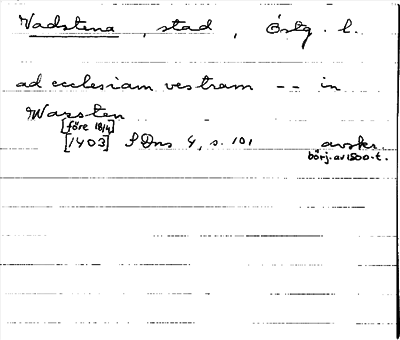 Vadstena, stad, Östg. l.
ad ecclesiam vestram -- in
Warsten
[före 18/4]
[1403] SDns 4, s. 101 avskr.
börj. av 1500-t.